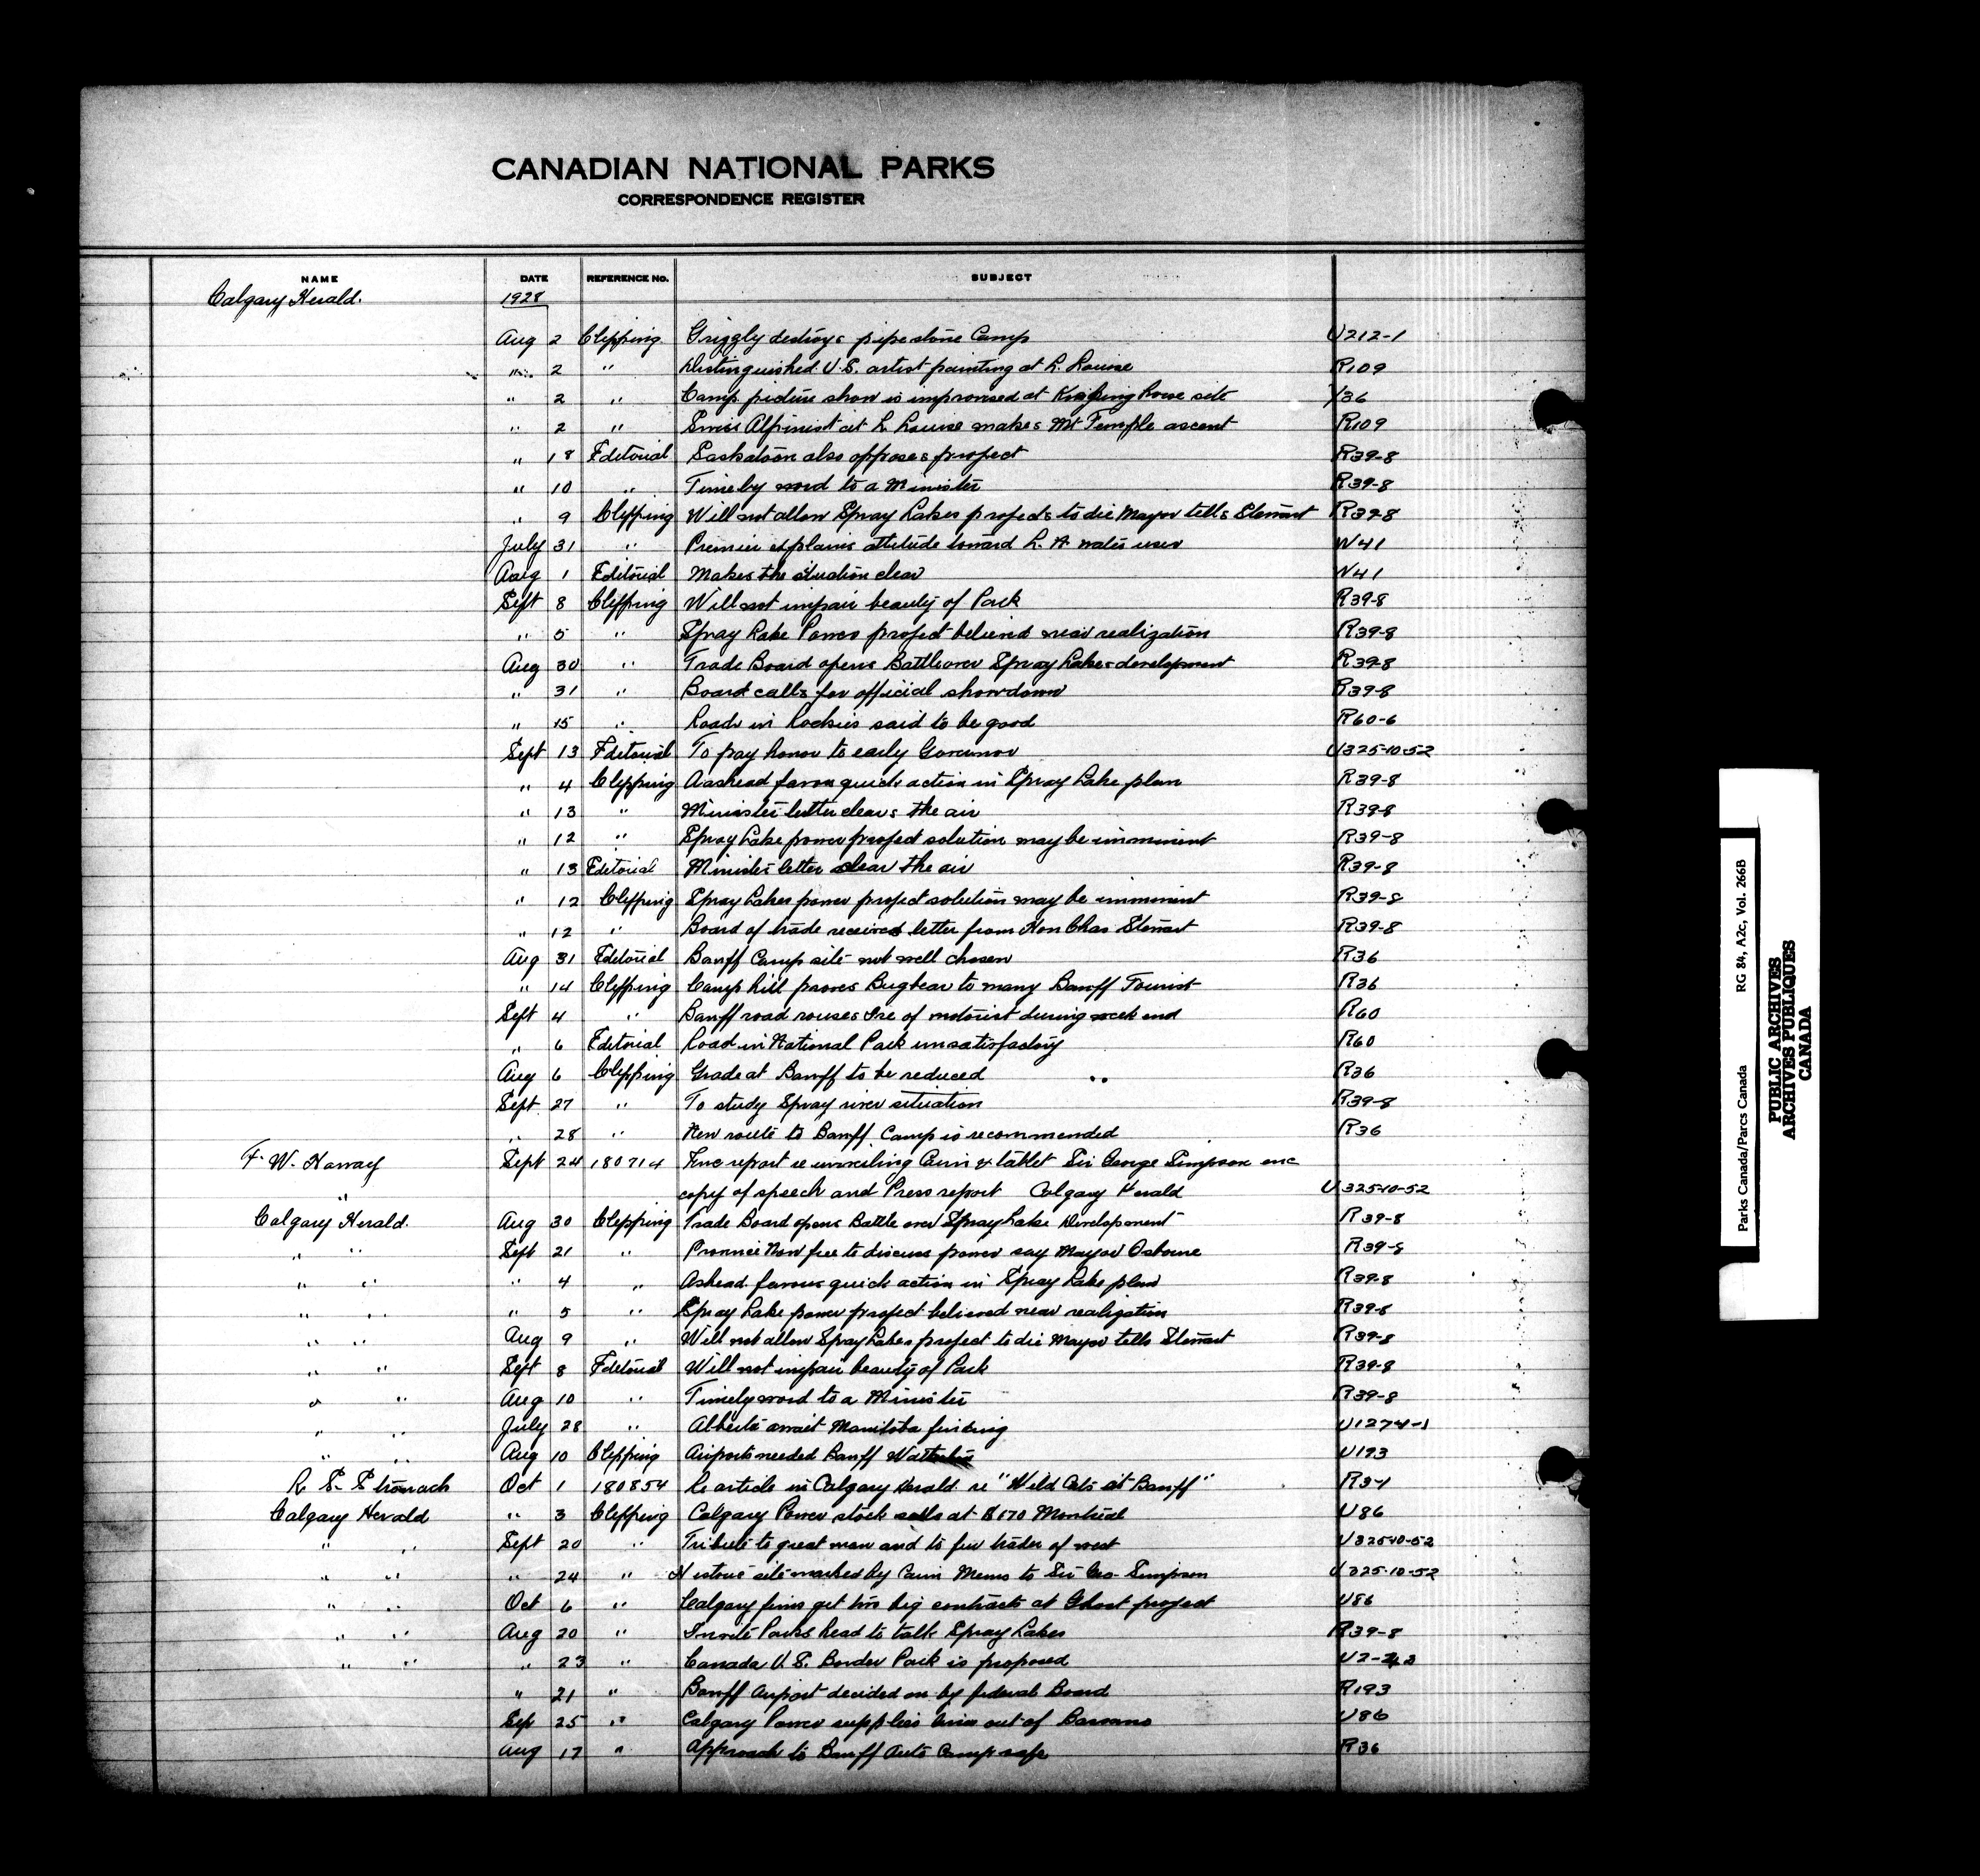 CANADIAN NATIONAL PARKS
CORRESPONDENCE REGISTER
NAME DATE REFERENCE No. SUBJECT
Calgary Herald. 1928
Aug 2 Clipping Grizzly destroys pipestone Camp U212-1
" 2 " Distinguished U.S. artist painting at L. Louise R109
" 2 " Camp picture show is improvised at Kicking horse site 36
" 2 " Swiss Alpinist at L Louise makes Mt Temple ascent R109
" 18 Editorial Saskatoon also opposes project R39-8
" 10 " Timeby word to a Minister R39-8
" 9 Clipping Will not allow Spray Lakes projects to die Mayor tells Stewart R39-8
July 31 " Premier explains attitude toward L. A water users W41
Aug 1 Editorial Makes the situation clear W41
Sept 8 Clipping Will not impair beauty of Park R39-8
" 5 " Spray Lake Power project believed near realization R39-8
Aug 30 " Trade Board opens Battle over Spray Lakes development R39-8
" 31 " Board calls for official showdown R39-8
" 15 " Roads in Rockies said to be good R60-6
Sept 13 Editorial To pay honor to early Governor U325-10-52
" 4 Clipping Aashead favors quick action in Spray Lake plan R39-8
" 13 " Minister letter clears the air R39-8
" 12 " Spray Lake power project solution may be imminent R39-8
" 13 Editorial Minister letter clear the air R39-8
" 12 Clipping Spray Lakes power project solution may be imminent R39-8
" 12 " Board of trade receives letter from Hon Chas Stewart R39-8
Aug 31 Editorial Banff Camp site not well chosen R36
" 14 Clipping Camp hill proves Bugbear to many Banff Tourist R36
Sept 4 " Banff road rouses Ire of motorist during week end R60
" 6 Editorial Road in National Park unsatisfactory R60
Aug 6 Clipping Grade at Banff to be reduced R36
Sept 27 " To study Spray river situation R39-8
" 28 " New route to Banff Camp is recommended R36
F. W. Howay Sept 24 180714 Enc report re unveiling Cairn & tablet Sir George Simpson enc
" copy of speech and Press report Calgary Herald U325-10-52
Calgary Herald. Aug 30 Clipping Trade Board opens Battle over Spray Lake Development R39-8
" " Sept 21 " Province Now free to discuss power say Mayor Osborne R39-8
" " " 4 " Ashead favours quick action in Spray Lake plan R39-8
" " " 5 " Spray Lake power project believed near realization R39-8
" " Aug 9 " Will not allow Spray Lakes project to die Mayor tells Stewart R39-8
" " Sept 8 Editorial Will not impair beauty of Park R39-8
" " Aug 10 " Timely word to a Minister R39-8
" " July 28 " Alberta await Manitoba finding U1274-1
" " Aug 10 Clipping Airports needed Banff U193
R. S. Stronach Oct 1 180854 Re article in Calgary Herald re "Wild Cats at Banff" R3-1
Calgary Herald " 3 Clipping Calgary Power stock sells at $170 Montreal U86
" " Sept 20 " Tribute to great man and to fur trader of west U325-10-52
" " " 24 " Historic site marked by Cairn Memo to Sir Geo. Simpson U325-10-52
" " Oct 6 " Calgary firms get two big contracts at Ghost project U86
" " Aug 20 " Invite Parks head to talk Spray Lakes R39-8
" " " 23 " Canada U.S. Border Park is proposed
" 21 " Banff Airport decided on by federal Board R193
Sep 25 " Calgary Power supplies out of Bassano U86
Aug 17 " Approach to Banff Auto Camp safe R36
Parks Canada/Parcs Canada RG 84, A2c, Vol. 266B
PUBLIC ARCHIVES
ARCHIVES PUBLIQUES
CANADA